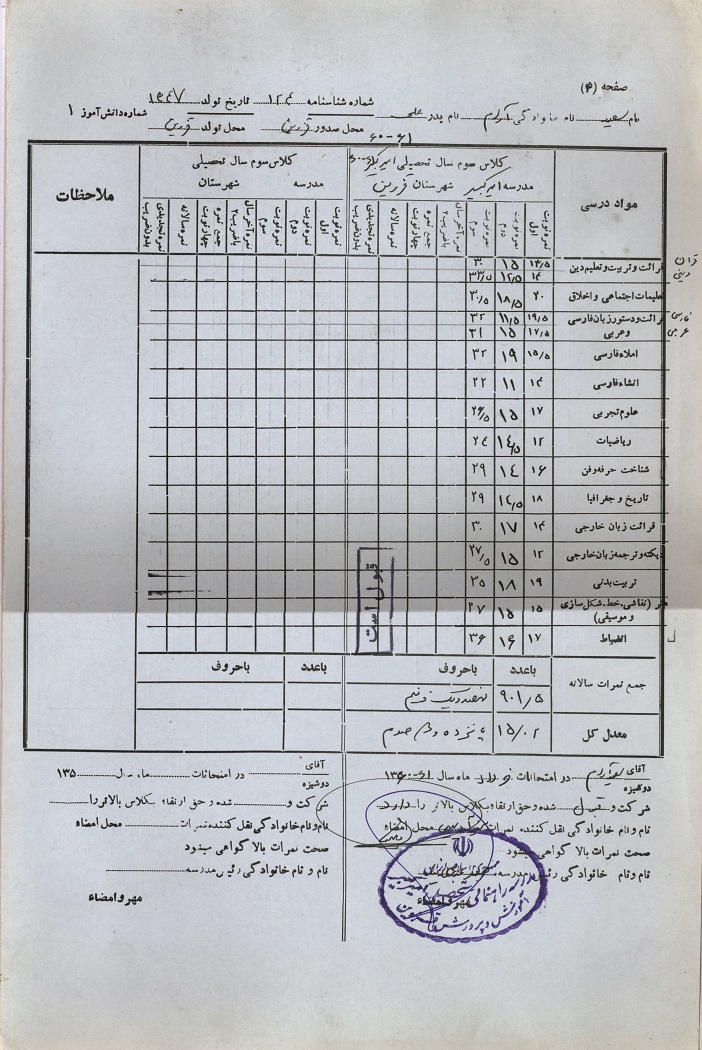 صفحه (۴)
نام سعید نام خانوادگی نام پدر علی شماره شناسنامه ۱۲۴ تاریخ تولد ۱۳۴۷ شماره دانش آموز ۱
محل صدور قزوین محل تولد قزوین
۶۰-۶۱
مواد درسی
کلاس سوم سال تحصیلی امیرکبیر ۶۰-۶۱
مدرسه امیرکبیر شهرستان قزوین
کلاس سوم سال تحصیلی
مدرسه شهرستان
ملاحظات
نمره نوبت اول نمره نوبت دوم نمره نوبت سوم نمره آخر سال باضریب ۲ جمع نمره چهار نوبت نمره سالانه نمره تجدیدی بدون ضریب
نمره نوبت اول نمره نوبت دوم نمره نوبت سوم نمره آخر سال باضریب ۲ جمع نمره چهار نوبت نمره سالانه نمره تجدیدی بدون ضریب
قرآن قرائت و تربیت و تعلیم دین ۱۴/۵ ۱۵ ۳۰
دینی ۱۴ ۱۲/۵ ۳۳/۵
تعلیمات اجتماعی و اخلاق ۲۰ ۱۸/۵ ۳۰/۵
فارسی قرائت و دستور زبان فارسی ۱۹/۵ ۱۱/۵ ۳۲
عربی و عربی ۱۷/۵ ۱۵ ۳۱
املاء فارسی ۱۵/۵ ۱۹ ۳۲
انشاء فارسی ۱۴ ۱۱ ۲۲
علوم تجربی ۱۷ ۱۵ ۲۶/۵
ریاضیات ۱۲ ۱۴/۵ ۲۴
شناخت حرفه و فن ۱۶ ۱۴ ۲۹
تاریخ و جغرافیا ۱۸ ۱۴/۵ ۲۹
قرائت زبان خارجی ۱۴ ۱۷ ۳۰
دیکته و ترجمه زبان خارجی ۱۲ ۱۵ ۲۷/۵
تربیت بدنی ۱۹ ۱۸ ۳۵
هنر (نقاشی.خط.شکل سازی و موسیقی) ۱۵ ۱۵ ۲۷
انضباط ۱۷ ۱۶ ۳۶
قبول است
باعدد باحروف باعدد باحروف
جمع نمرات سالانه ۹۰۱/۵ نهصد و یک و نیم
معدل کل ۱۵/۰۲ پانزده و دو صدم
آقای
دوشیزه در امتحانات خرداد ماه سال ۶۱-۱۳۶۰
شرکت و قبول شده و حق ارتقاء بکلاس بالاتر را دارد
نام و نام خانوادگی نقل کننده نمرات محل امضاء
صحت نمرات بالا گواهی میشود
نام و نام خانوادگی رئیس مدرسه
مهر و امضاء
مدرسه راهنمائی تحصیلی امیرکبیر
آموزش و پرورش قزوین
آقای
دوشیزه در امتحانات ماه سال ۱۳۵
شرکت و شده و حق ارتقاء بکلاس بالاتر را
نام و نام خانوادگی نقل کننده نمرات محل امضاء
صحت نمرات بالا گواهی میشود
نام و نام خانوادگی رئیس مدرسه
مهر و امضاء